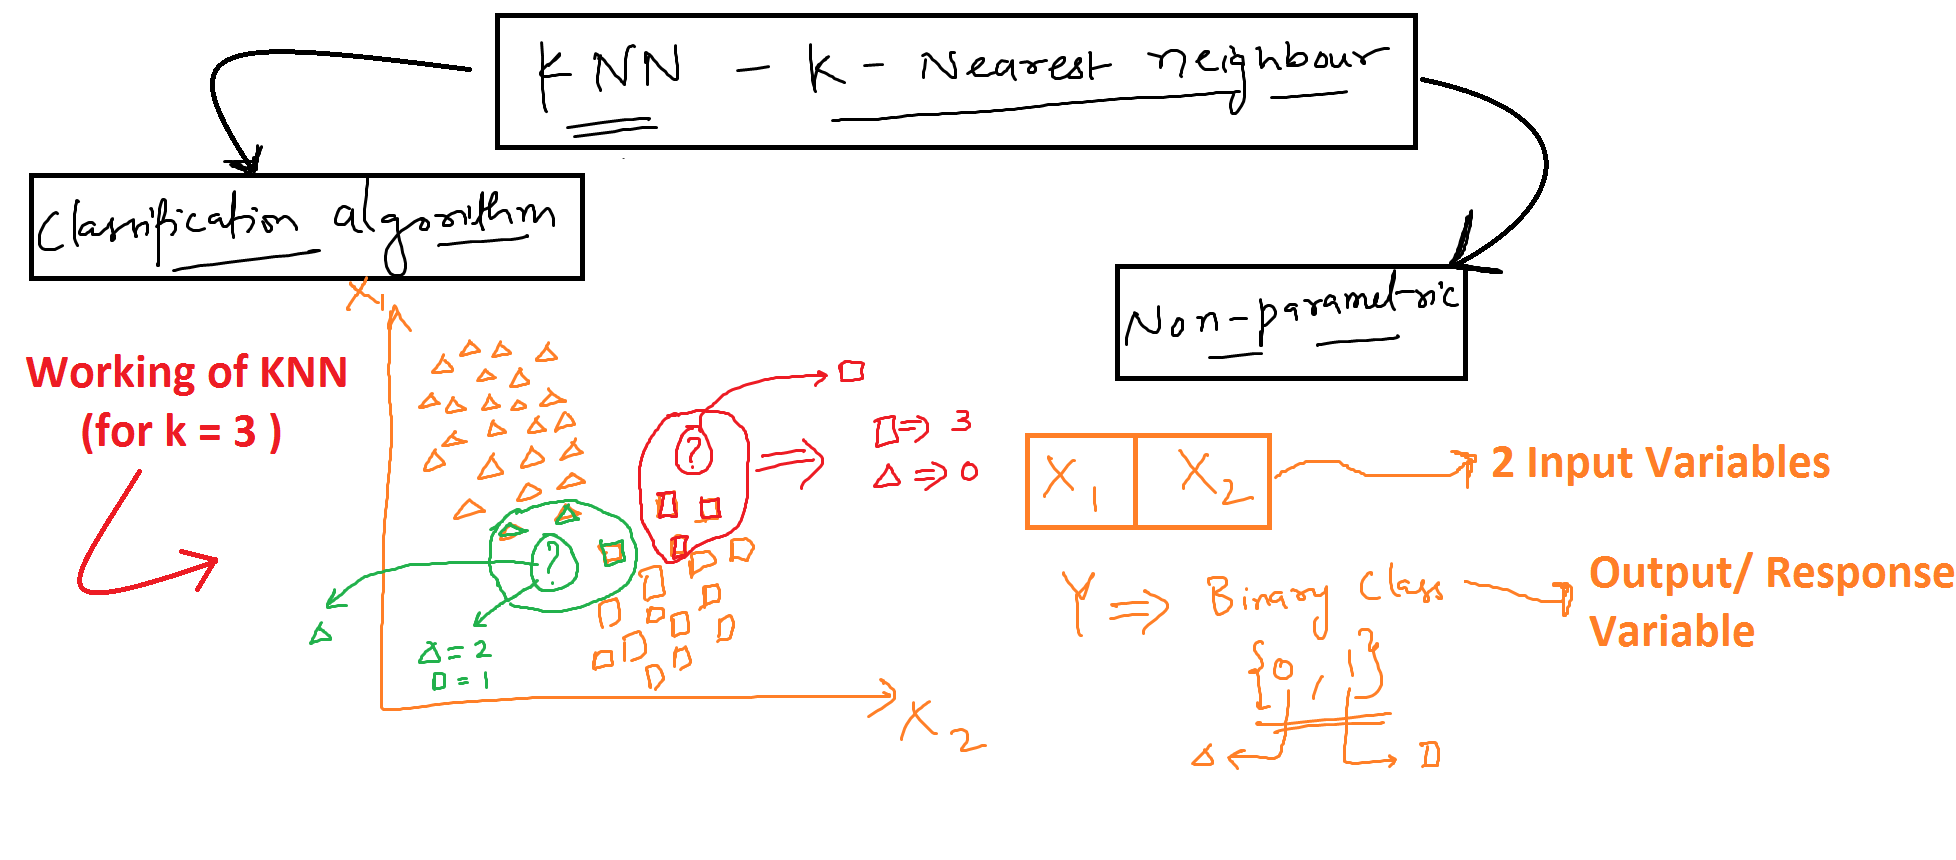 KNN - K - Nearest neighbour
Classification algorithm
Non-parametric
Working of KNN
(for k = 3 )
X1
□ => 3
△ => 0
?
?
△ = 2
□ = 1
X2
X1 X2
2 Input Variables
Y => Binary Class
{0, 1}
Output/ Response
Variable